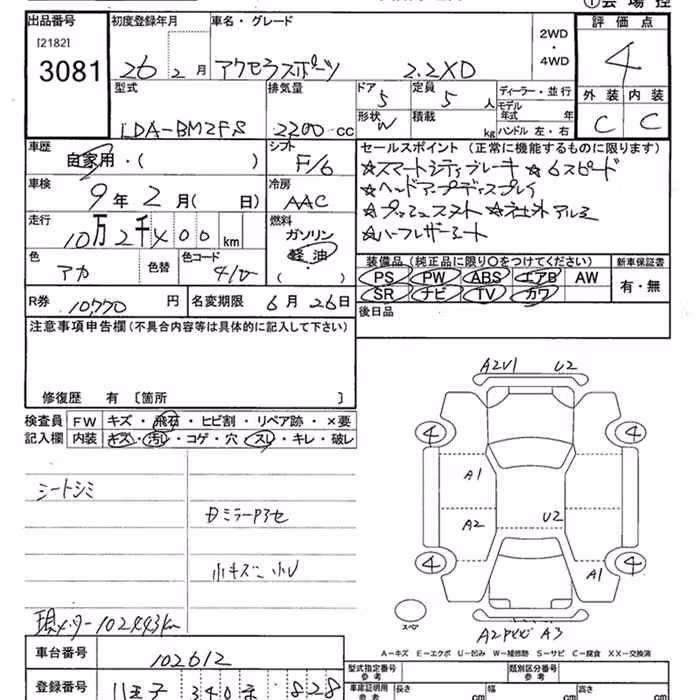 ①会場控
出品番号 初度登録年月 車名・グレード 2WD・4WD 評価点
[2182]
3081 26 2月 アクセラスポーツ 2.2XD 4
型式 排気量 ドア 5 定員 5人 ディーラー・並行 外装 内装
モデル年式 年
LDA-BM2FS 2200cc 形状 W 積載 kg ハンドル 左・右 C C
車歴 シフト セールスポイント(正常に機能するものに限ります)
自家用・( ) F/6 ☆スマートシティブレーキ ☆6スピード
車検 冷房 ☆ヘッドアップディスプレイ
9年2月(日) AAC ☆プッシュスタート ☆社外アルミ
走行 燃料 ☆ハーフレザーシート
10万2千400km ガソリン
軽油
( )
色 色替 色コード 装備品(純正品に限り○をつけてください) 新車保証書
アカ 41V PS PW ABS エアB AW 有・無
R券 10,770円 名変期限 6月26日 SR ナビ TV カワ
注意事項申告欄(不具合内容等は具体的に記入して下さい) 後日品
修復歴 有〔箇所 〕
検査員 FW キズ・飛石・ヒビ割・リペア跡・×要
記入欄 内装 キズ・汚レ・コゲ・穴・スレ・キレ・破レ
A2U1 U2
4 4
A1
シートシミ
A2 U2
小キズ 小U
4 4
A1
現メーター102443km
スペア
A3
A-キズ E-エクボ U-凹み W-補修跡 S-サビ C-腐食 XX-交換済
車台番号 102612 型式指定番号 参考 類別区分番号 参考
登録番号 八王子 340 828 車庫証明用 参考 長さ cm 幅 cm 高さ cm